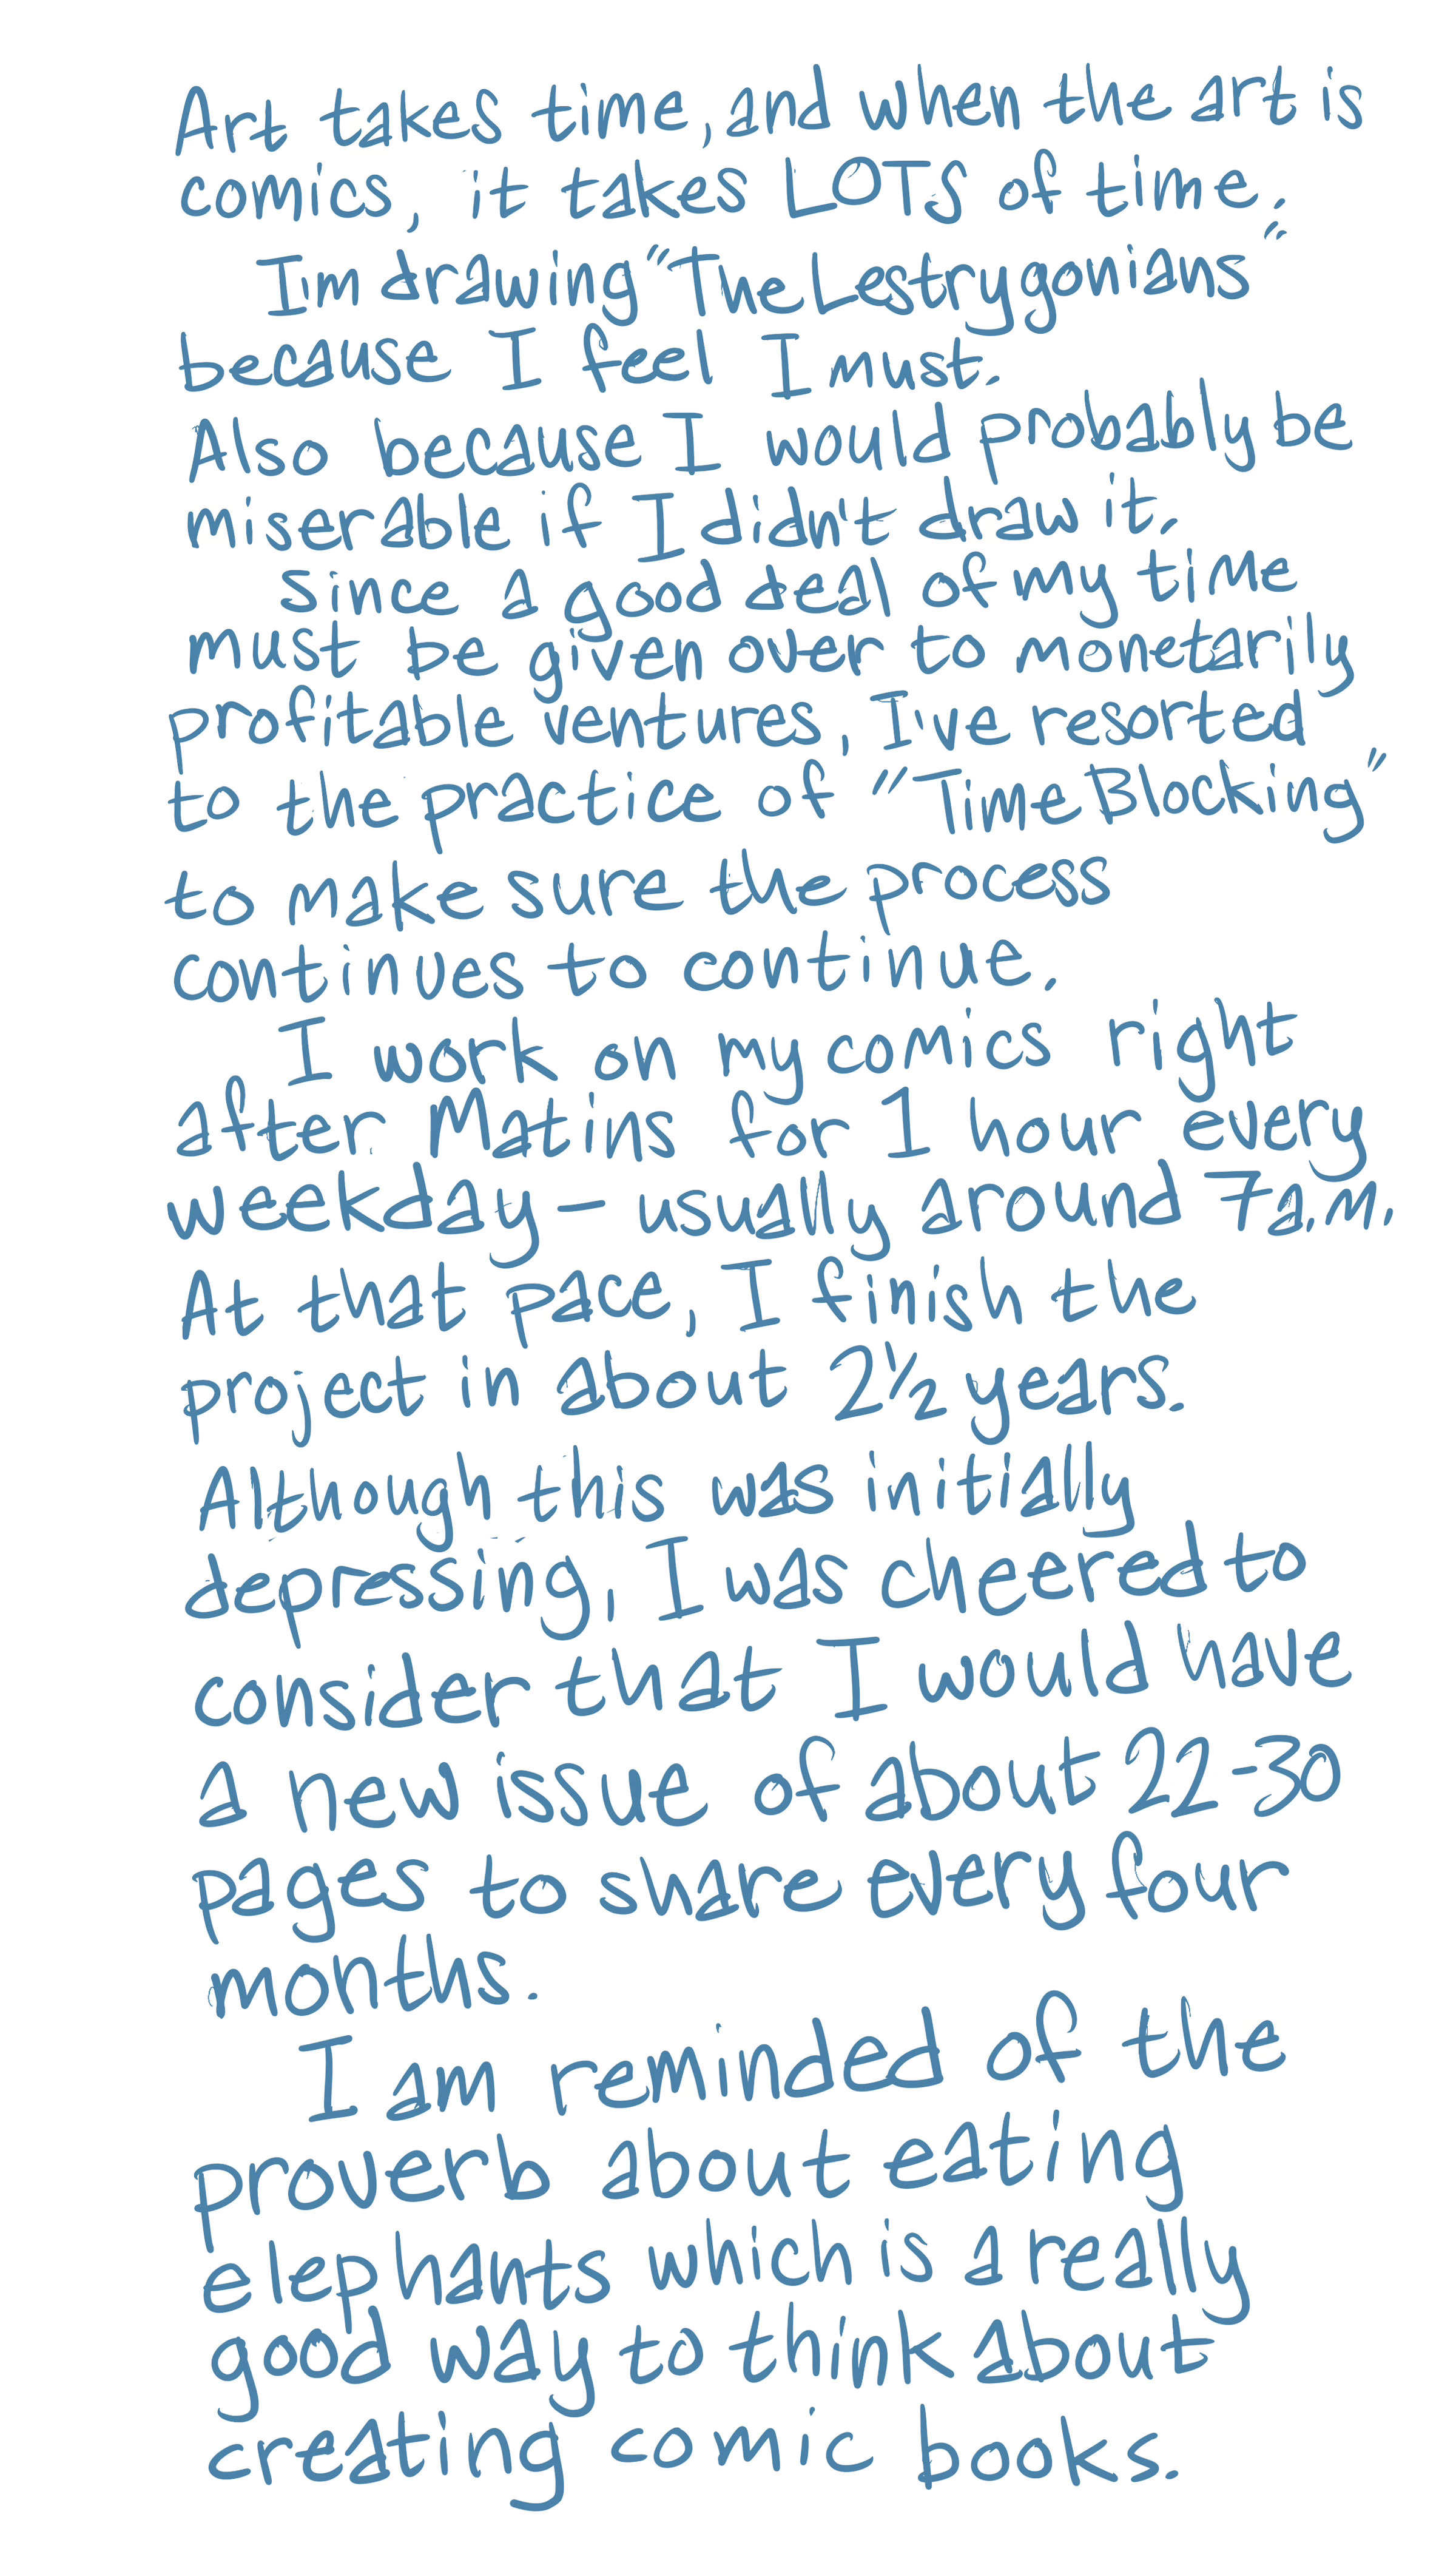 Art takes time, and when the art is
comics, it takes LOTS of time.
I'm drawing "The Lestrygonians"
because I feel I must.
Also because I would probably be
miserable if I didn't draw it.
Since a good deal of my time
must be given over to monetarily
profitable ventures, I've resorted
to the practice of "Time Blocking"
to make sure the process
continues to continue.
I work on my comics right
after Matins for 1 hour every
weekday - usually around 7a.m.
At that pace, I finish the
project in about 2½ years.
Although this was initially
depressing, I was cheered to
consider that I would have
a new issue of about 22-30
pages to share every four
months.
I am reminded of the
proverb about eating
elephants which is a really
good way to think about
creating comic books.